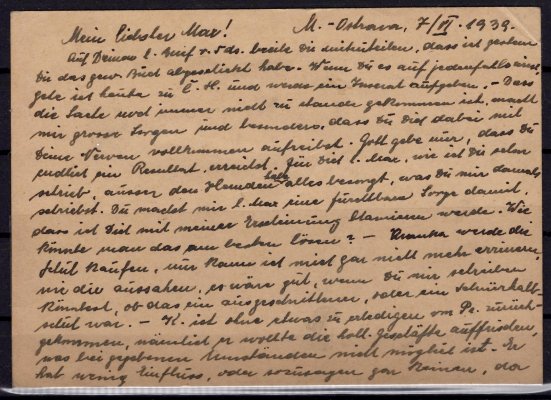 Mein liebster Max! M.-Ostrava, 7/VI. 1939.
Auf Deinen l. Brief v. 5 ds. beeile Dir mitzuteilen, dass ich gestern
Dir das gew. Buch abgeschickt habe. Wenn Du es auf jedenfalls
gehe ich heute zu und werde ein Inserat aufgeben. - Dass
die Sache noch immer nicht zu stande gekommen ist, macht
mir grosse Sorgen und besonders, dass Du Dich dabei mit
Deine Nerven vollkommen aufreibst. Gott gebe nur, dass Du
endlich ein Resultat erreichst. Für Dich l. Max, wie ich Dir schon
schrieb, ausser den Hemden habe alles besorgt, was Du mir damals
schriebst. Du machst mir l. Max eine furchtbare Sorge damit,
dass ich Dich mit meiner Erscheinung blamieren werde. Wie
könnte man das am besten lösen? - werde die
Schuh kaufen, nur kann ich mich gar nicht mehr erinnern,
wie die aussahen, es wäre gut, wenn Du mir schreiben
könntest, ob das ein ausgeschnittener, oder ein Schnürhalb-
schuh war. - K. ist ohne etwas zu erledigen von Pr. zurück-
gekommen, nämlich er wollte die holl. Geschäfte auffrischen,
was bei gegebenen Umständen nicht möglich ist. Er
hat wenig Einfluss, oder sozusagen gar keinen, da